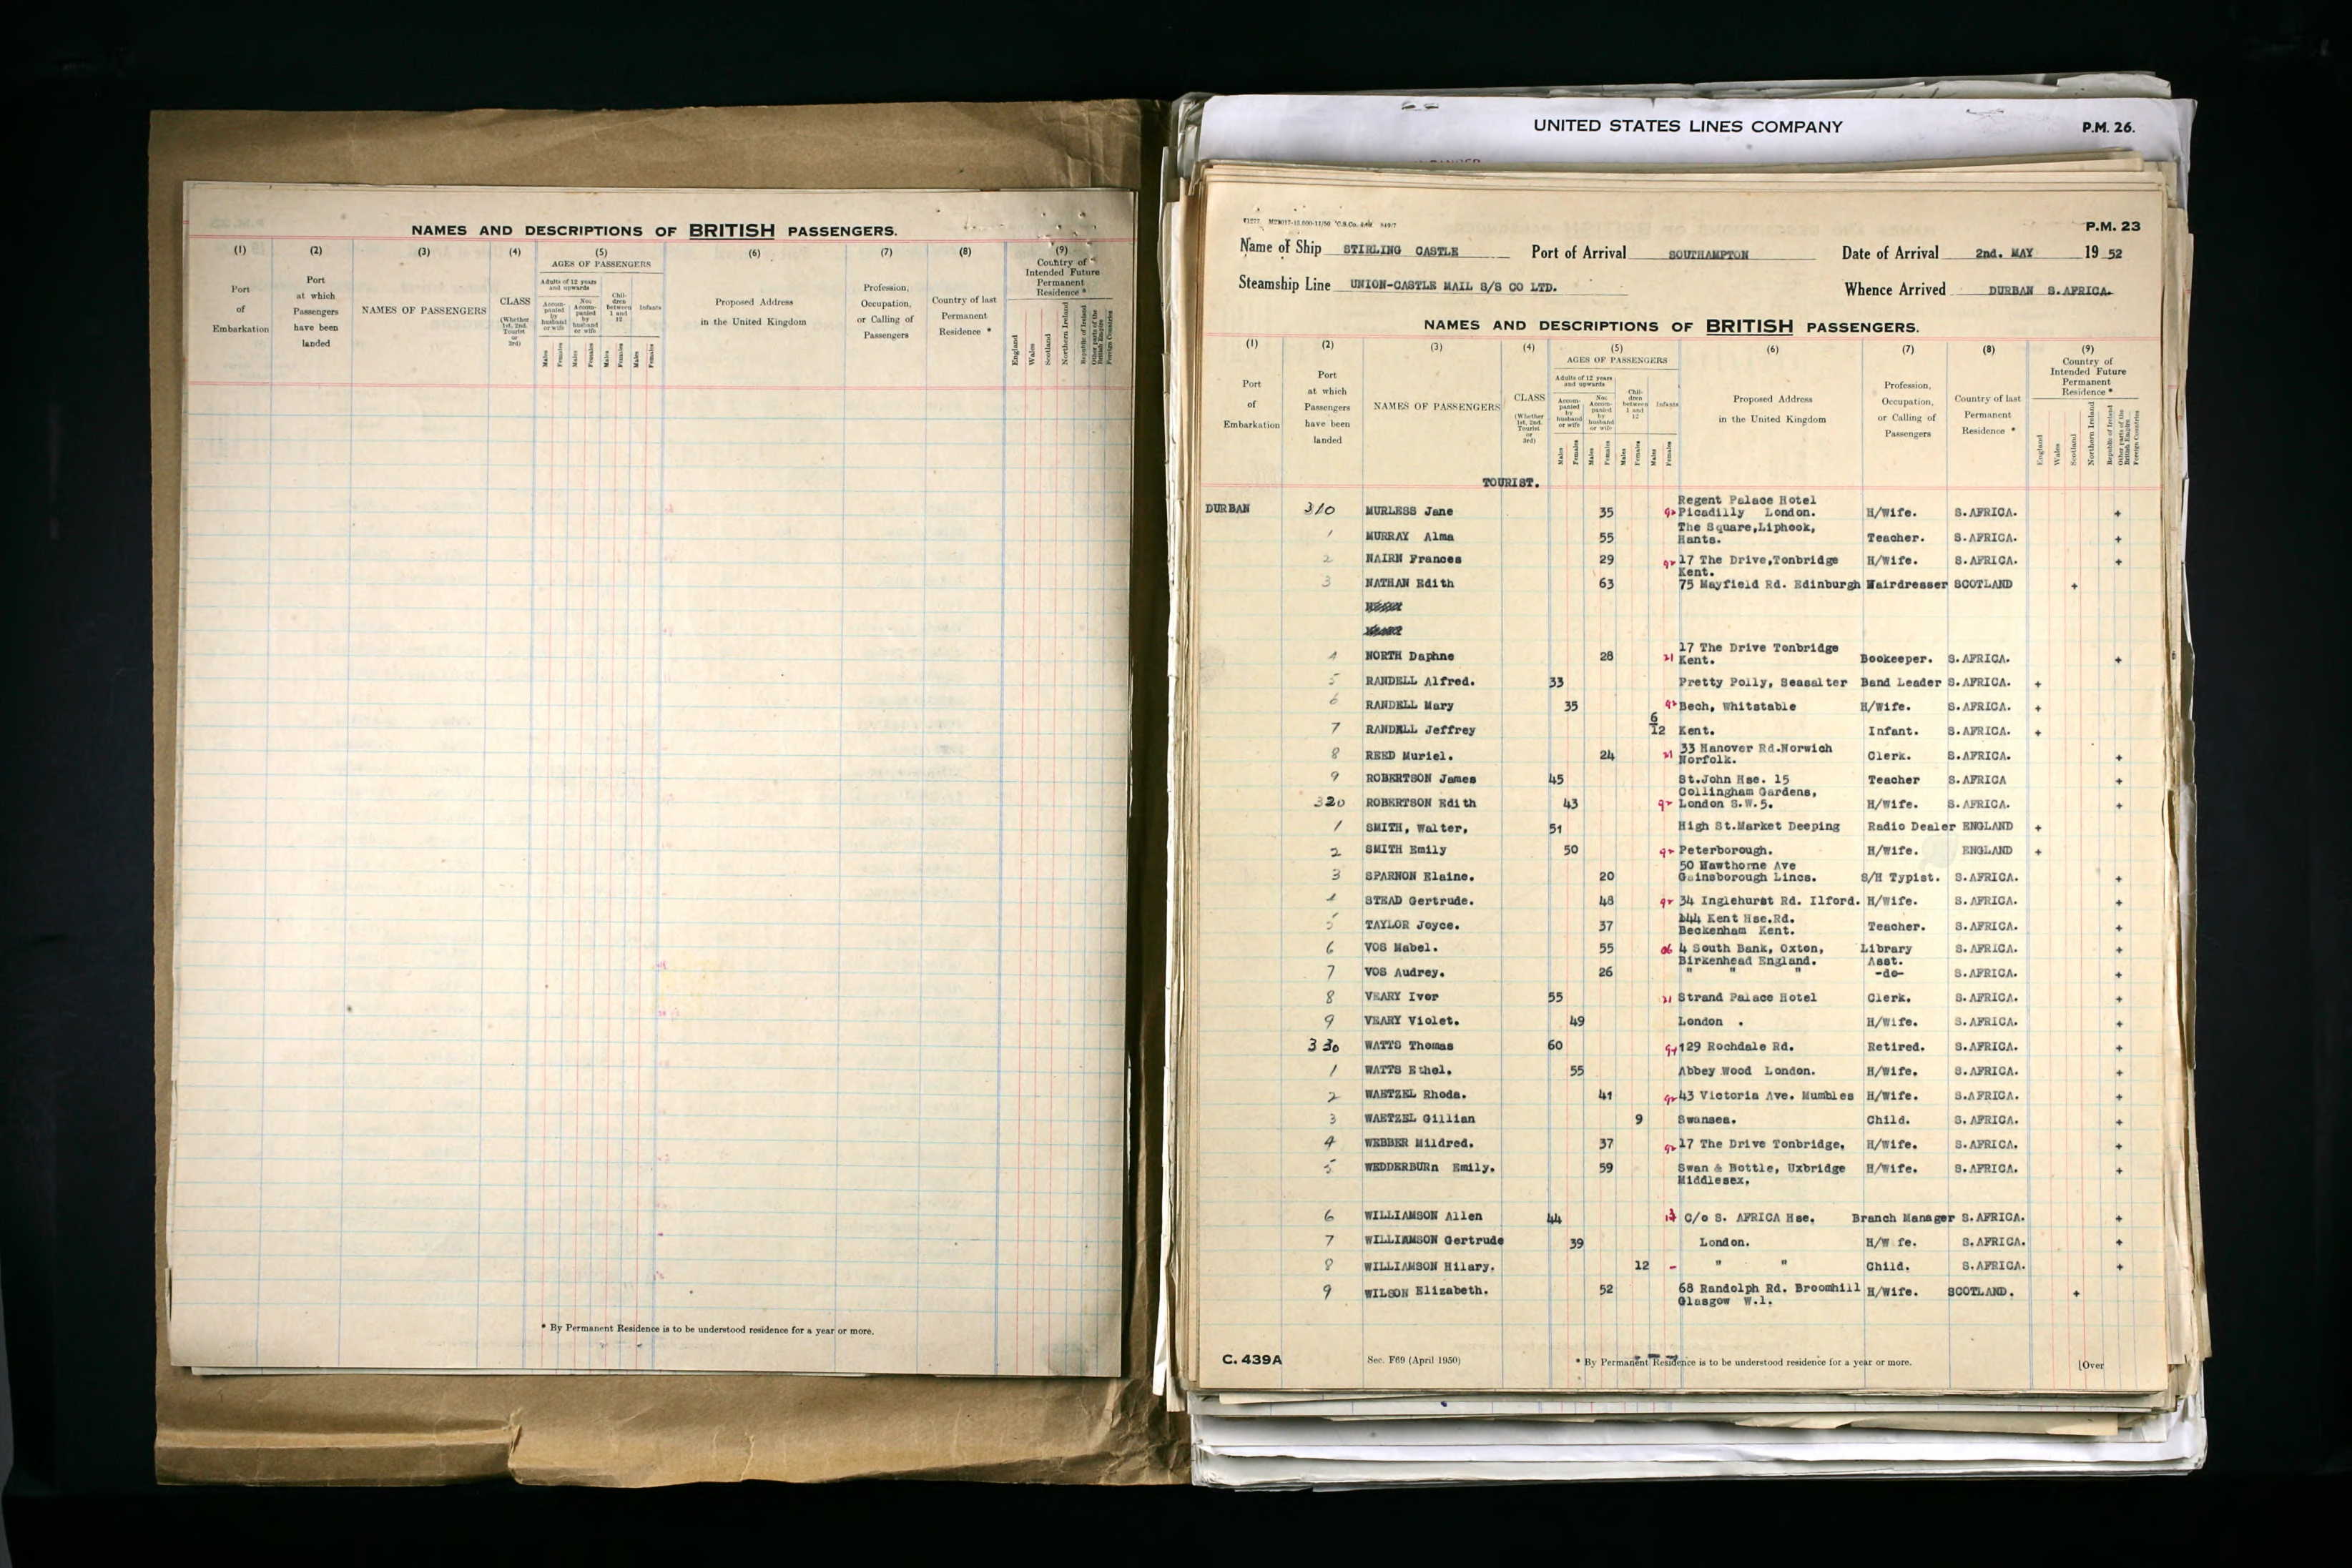 NAMES AND DESCRIPTIONS OF BRITISH PASSENGERS.
(1) (2) (3) (4) (5) (6) (7) (8) (9)
Port of Embarkation
Port at which Passengers have been landed
NAMES OF PASSENGERS
CLASS (Whether 1st, 2nd, Tourist or 3rd)
AGES OF PASSENGERS
Adults of 12 years and upwards
Accompanied by husband or wife
Not Accompanied by husband or wife
Children between 1 and 12
Infants
Males Females Males Females Males Females Males Females
Proposed Address in the United Kingdom
Profession, Occupation, or Calling of Passengers
Country of last Permanent Residence *
Country of Intended Future Permanent Residence *
England Wales Scotland Northern Ireland Republic of Ireland Other parts of the British Empire Foreign Countries
* By Permanent Residence is to be understood residence for a year or more.
UNITED STATES LINES COMPANY P.M. 26.
P.M. 23
Name of Ship STIRLING CASTLE Port of Arrival SOUTHAMPTON Date of Arrival 2nd. MAY 19 52
Steamship Line UNION-CASTLE MAIL S/S CO LTD. Whence Arrived DURBAN S.AFRICA.
NAMES AND DESCRIPTIONS OF BRITISH PASSENGERS.
(1) (2) (3) (4) (5) (6) (7) (8) (9)
Port of Embarkation
Port at which Passengers have been landed
NAMES OF PASSENGERS
CLASS (Whether 1st, 2nd, Tourist or 3rd)
AGES OF PASSENGERS
Adults of 12 years and upwards
Accompanied by husband or wife
Not Accompanied by husband or wife
Children between 1 and 12
Infants
Males Females Males Females Males Females Males Females
Proposed Address in the United Kingdom
Profession, Occupation, or Calling of Passengers
Country of last Permanent Residence *
Country of Intended Future Permanent Residence *
England Wales Scotland Northern Ireland Republic of Ireland Other parts of the British Empire Foreign Countries
TOURIST.
Regent Palace Hotel
DURBAN 310 MURLESS Jane 35 Picadilly London. H/Wife. S.AFRICA. +
The Square,Liphook,
1 MURRAY Alma 55 Hants. Teacher. S.AFRICA. +
2 NAIRN Frances 29 17 The Drive,Tonbridge H/Wife. S.AFRICA. +
Kent.
3 NATHAN Edith 63 75 Mayfield Rd. Edinburgh Hairdresser SCOTLAND +
17 The Drive Tonbridge
4 NORTH Daphne 28 21 Kent. Bookeeper. S.AFRICA. +
5 RANDELL Alfred. 33 Pretty Polly, Seasalter Band Leader S.AFRICA. +
6 RANDELL Mary 35 Bech, Whitstable H/Wife. S.AFRICA. +
7 RANDELL Jeffrey 6/12 Kent. Infant. S.AFRICA. +
33 Hanover Rd.Norwich
8 REED Muriel. 24 21 Norfolk. Clerk. S.AFRICA. +
9 ROBERTSON James 45 St.John Hse. 15 Teacher S.AFRICA +
Collingham Gardens,
320 ROBERTSON Edith 43 London S.W.5. H/Wife. S.AFRICA. +
1 SMITH, Walter, 51 High St.Market Deeping Radio Dealer ENGLAND +
2 SMITH Emily 50 Peterborough. H/Wife. ENGLAND +
50 Hawthorne Ave
3 SPARNON Elaine. 20 Gainsborough Lincs. S/H Typist. S.AFRICA. +
4 STEAD Gertrude. 48 34 Inglehurst Rd. Ilford. H/Wife. S.AFRICA. +
144 Kent Hse.Rd.
5 TAYLOR Joyce. 37 Beckenham Kent. Teacher. S.AFRICA. +
6 VOS Mabel. 55 06 4 South Bank, Oxton, Library S.AFRICA. +
Birkenhead England. Asst.
7 VOS Audrey. 26 " " " -do- S.AFRICA. +
8 VEARY Ivor 55 21 Strand Palace Hotel Clerk. S.AFRICA. +
9 VEARY Violet. 49 London . H/Wife. S.AFRICA. +
330 WATTS Thomas 60 129 Rochdale Rd. Retired. S.AFRICA. +
1 WATTS Ethel. 55 Abbey Wood London. H/Wife. S.AFRICA. +
2 WAETZEL Rhoda. 41 43 Victoria Ave. Mumbles H/Wife. S.AFRICA. +
3 WAETZEL Gillian 9 Swansea. Child. S.AFRICA. +
4 WEBBER Mildred. 37 17 The Drive Tonbridge, H/Wife. S.AFRICA. +
5 WEDDERBURn Emily. 59 Swan & Bottle, Uxbridge H/Wife. S.AFRICA. +
Middlesex.
6 WILLIAMSON Allen 44 C/o S. AFRICA Hse. Branch Manager S.AFRICA. +
7 WILLIAMSON Gertrude 39 London. H/W fe. S.AFRICA. +
8 WILLIAMSON Hilary. 12 - " " Child. S.AFRICA. +
9 WILSON Elizabeth. 52 68 Randolph Rd. Broomhill H/Wife. SCOTLAND. +
Glasgow W.1.
C. 439A Sec. F69 (April 1950) * By Permanent Residence is to be understood residence for a year or more. [Over